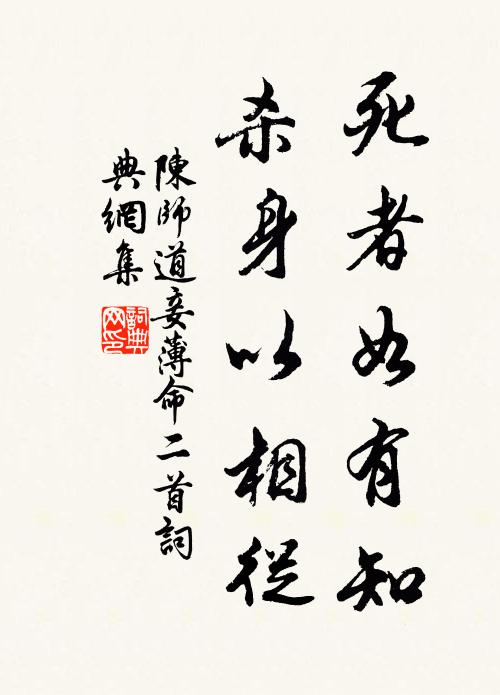 死者如有知
杀身以相從
陳師道妾薄命二首詞
典網集
詞典网印